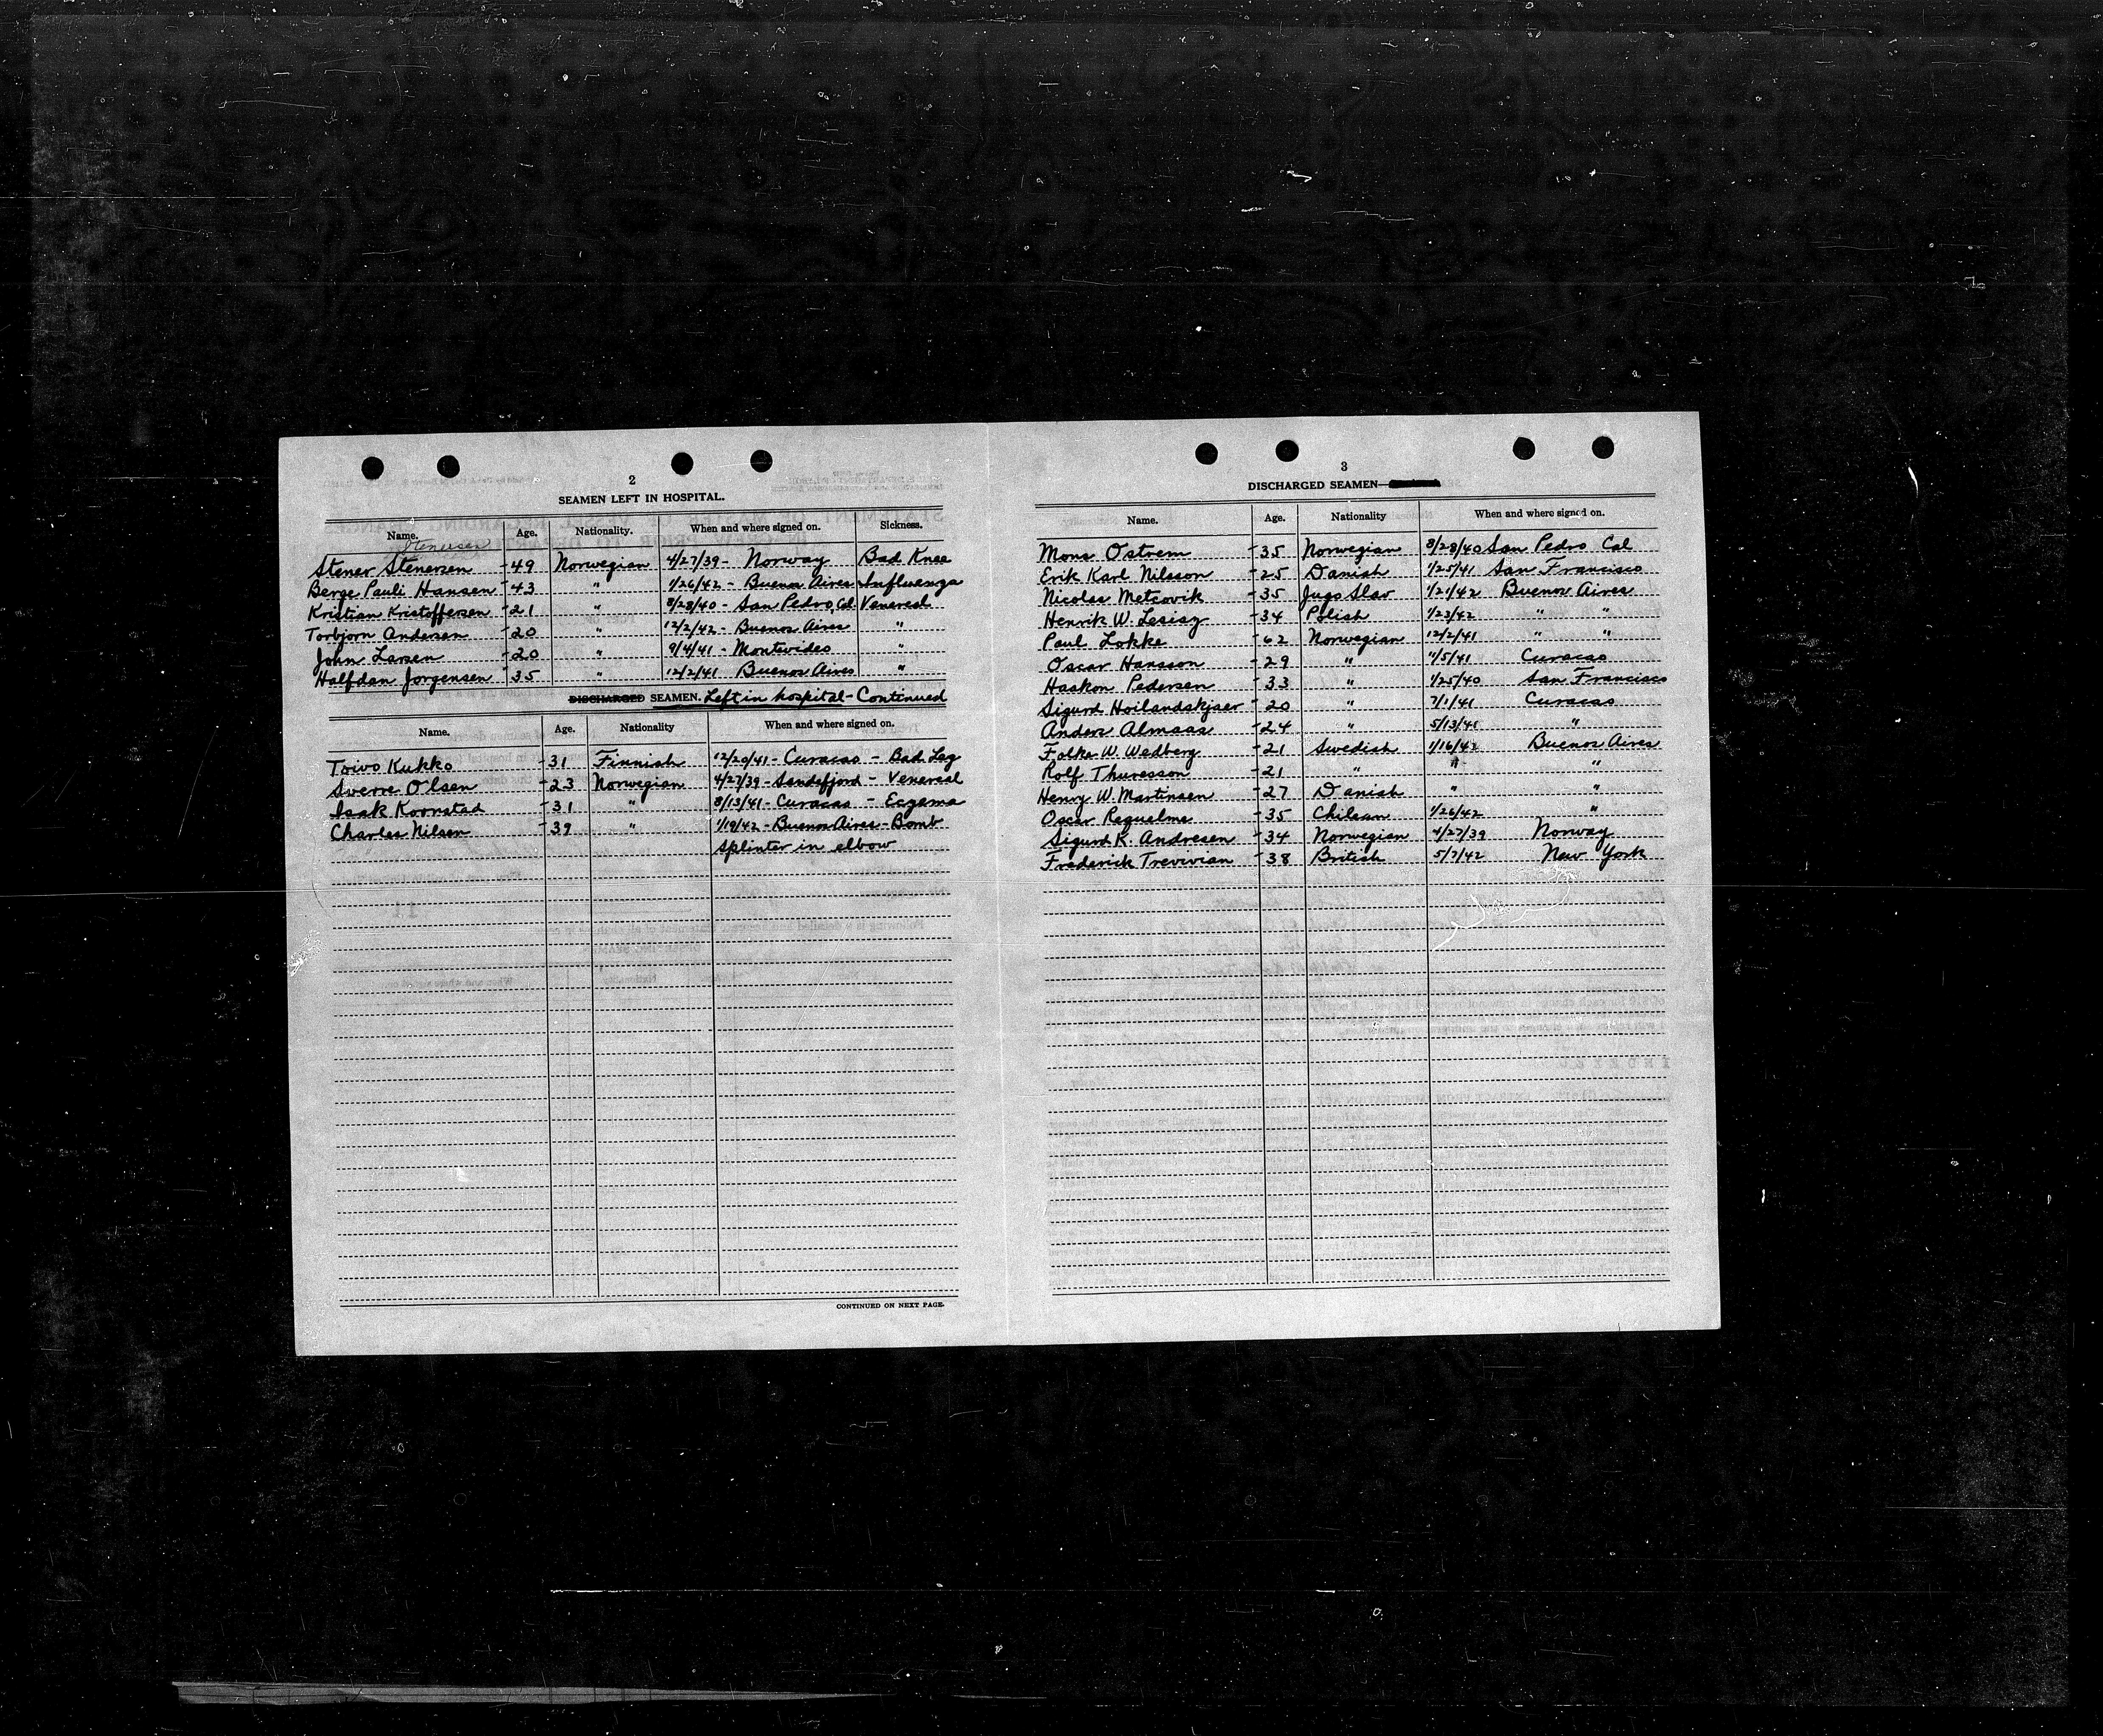 2
SEAMEN LEFT IN HOSPITAL.
Name. Age. Nationality. When and where signed on. Sickness.
Stenersen
Stener Stenersen -49 Norwegian 4/27/39 - Norway Bad Knee
Berge Pauli Hansen -43 " 1/26/42 - Buenos Aires Influenza
Kristian Kristoffersen -21 " 8/28/40 - San Pedro, Cal. Venereal
Torbjorn Andersen -20 " 12/2/42 - Buenos Aires "
John Larsen -20 " 9/4/41 - Montevideo "
Halfdan Jorgensen -35 " 12/2/41 Buenos Aires "
DISCHARGED SEAMEN. Left in hospital - Continued
Name. Age. Nationality When and where signed on.
Toivo Kukko -31 Finnish 12/20/41 - Curacao - Bad Leg
Sverre Olsen -23 Norwegian 4/27/39 - Sandefjord - Venereal
Isak Kornstad -31 " 8/13/41 - Curacao - Eczema
Charles Nilsen -39 " 1/19/42 - Buenos Aires - Bomb
splinter in elbow
CONTINUED ON NEXT PAGE.
3
DISCHARGED SEAMEN—
Name. Age. Nationality When and where signed on.
Mons Ostrem -35 Norwegian 8/28/40 San Pedro Cal
Erik Karl Nilsson -25 Danish 1/25/41 San Francisco
Nicolas Metcovik -35 Jugo Slav 1/21/42 Buenos Aires
Henrik W. Lesisz -34 Polish 1/23/42 " "
Paul Lokke -62 Norwegian 12/2/41 " "
Oscar Hansson -29 " 11/5/41 Curacao
Haakon Pedersen -33 " 1/25/40 San Francisco
Sigurd Hoilandskjaer -20 " 7/1/41 Curacao
Anders Almaas -24 " 5/13/41 "
Folke W. Wedberg -21 Swedish 1/16/42 Buenos Aires
Rolf Thuresson -21 " " "
Henry W. Martinsen -27 Danish " "
Oscar Requelme -35 Chilean 1/26/42 "
Sigurd K. Andresen -34 Norwegian 4/27/39 Norway
Frederick Trevivian -38 British 5/7/42 New York